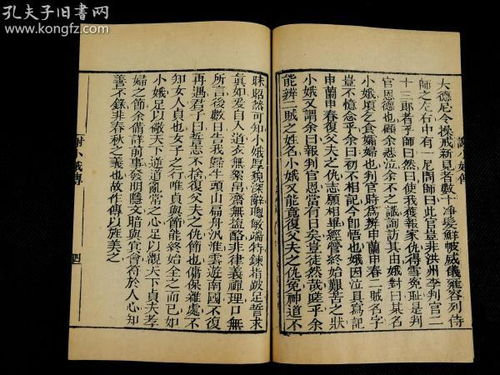 孔夫子旧书网
www.kongfz.com
謝小娥傳
大德尼令操戒新見者數十凈髮鮮帔威儀雍容列侍
師之左右中有一尼問師曰此官豈非洪州李判官二
十三郎者乎師曰然曰使我獲報家仇得雪冤耻是判
官恩德也顧余悲泣余不之識詢訪其由娥對曰某名
小娥頃乞食孀婦也判官時爲辨申蘭申春二賊名字
豈不憶念乎余曰初不相記今卽悟也娥因泣具寫記
申蘭申春復父夫之仇志願粗畢經營終始艱苦之狀
小娥又謂余曰報判官恩當有日矣豈徒然哉嗟乎余
能辨二賊之姓名小娥又能竟復父夫之仇冤神道不
昧昭然可知小娥厚貌深辭聰敏端特鍊指跛足誓求
眞如爰自入道衣無絮帛齋無鹽酪非律義禪理口無
所言後數日告我歸牛頭山扁舟汎淮雲遊南國不復
再遇君子曰誓志不捨復父夫之仇節也傭保雜處不
知女人貞也女子之行唯貞與節能終始全之而已如
小娥足以儆天下逆道亂常之心足以觀天下貞夫孝
婦之節余備詳前事發明隱文暗與冥會符於人心知
善不錄非春秋之義也故作傳以旌美之
謝小娥傳
四